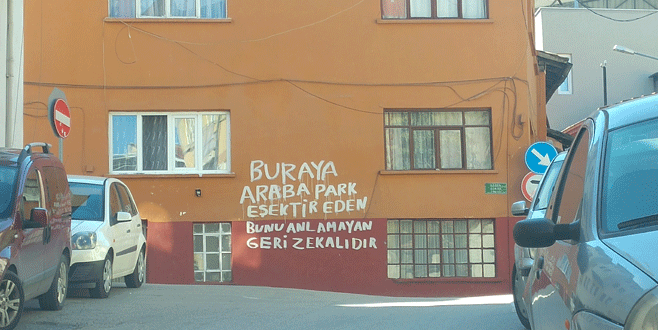 BURAYA
ARABA PARK
EŞEKTİR EDEN
BUNU ANLAMAYAN
GERİ ZEKALIDIR